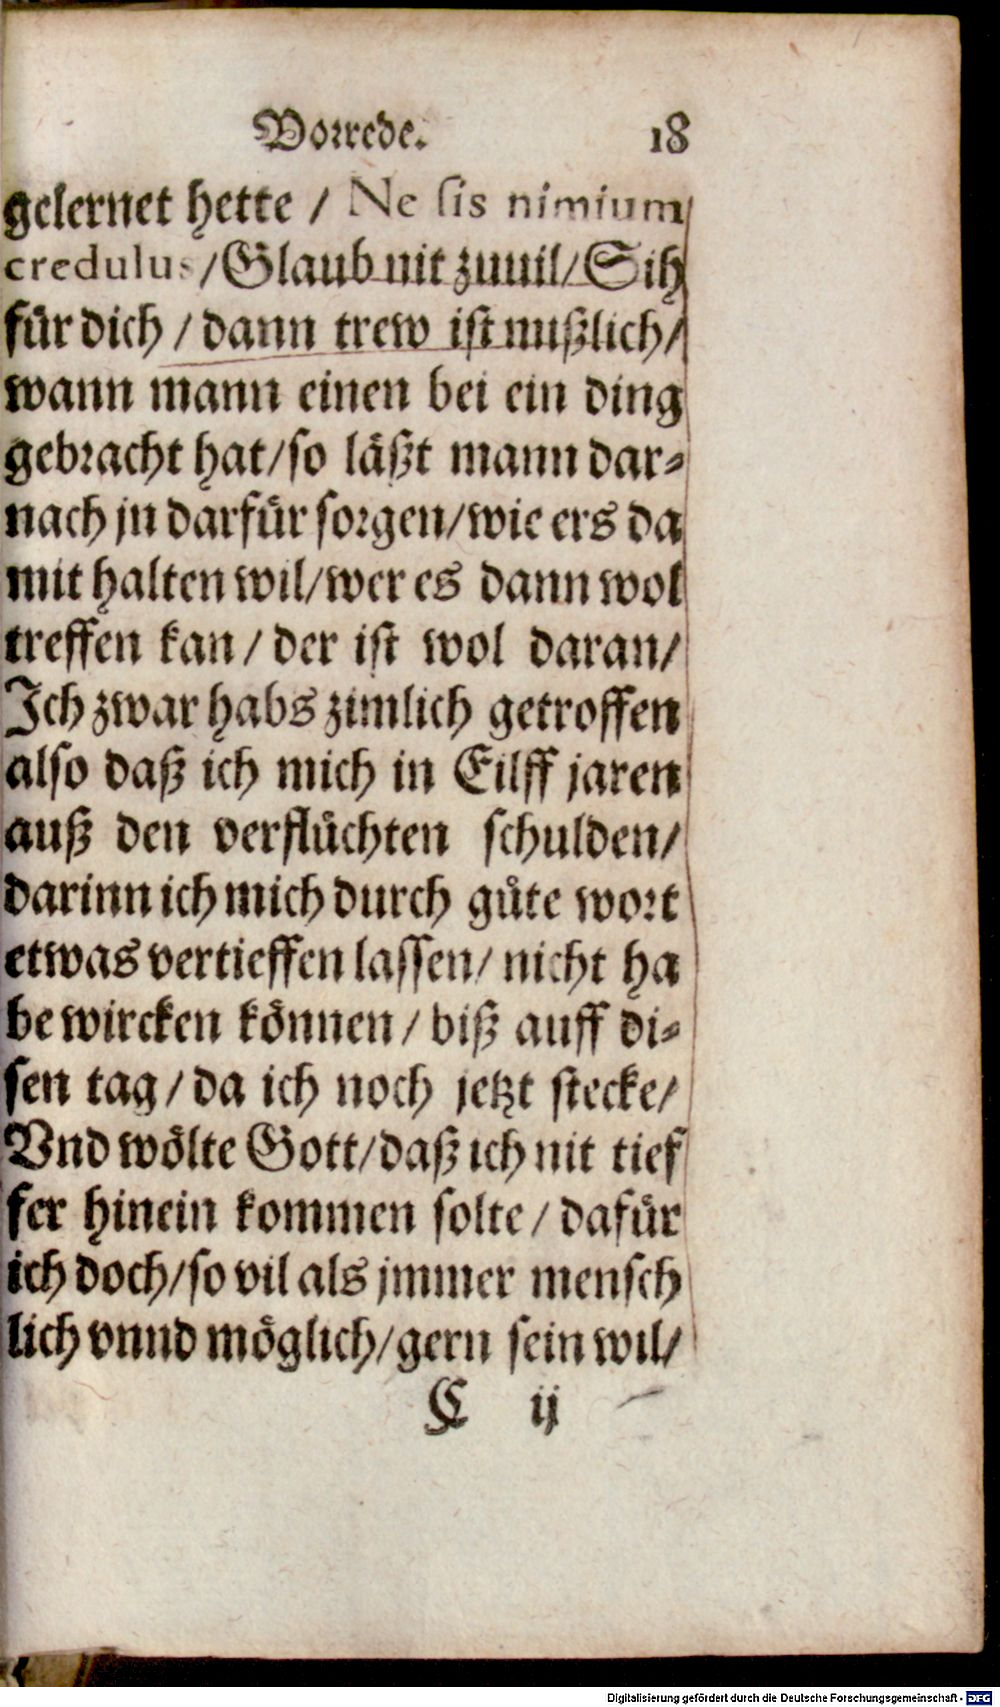 Vorrede. 18
gelernet hette / Ne sis nimium
credulus / Glaub nit zuuil / Sih
für dich / dann trew ist mißlich /
wann mann einen bei ein ding
gebracht hat / so läßt mann dar⸗
nach jn darfür sorgen / wie ers da
mit halten wil / wer es dann wol
treffen kan / der ist wol daran /
Ich zwar habs zimlich getroffen
also daß ich mich in Eilff jaren
auß den verflůchten schulden /
darinn ich mich durch gůte wort
etwas vertieffen lassen / nicht ha
be wircken können / biß auff di⸗
sen tag / da ich noch jetzt stecke /
Vnd wölte Gott / daß ich nit tief
fer hinein kommen solte / dafür
ich doch / so vil als jmmer mensch
lich vnnd möglich / gern sein wil /
C ij
Digitalisierung gefördert durch die Deutsche Forschungsgemeinschaft - DFG